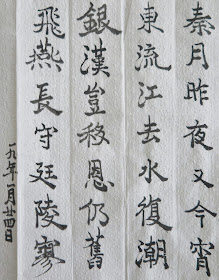 秦月昨夜又今宵
東流江去水復潮
銀漢豈移恩仍舊
飛燕長守廷陵寥
一九年一月廿四日